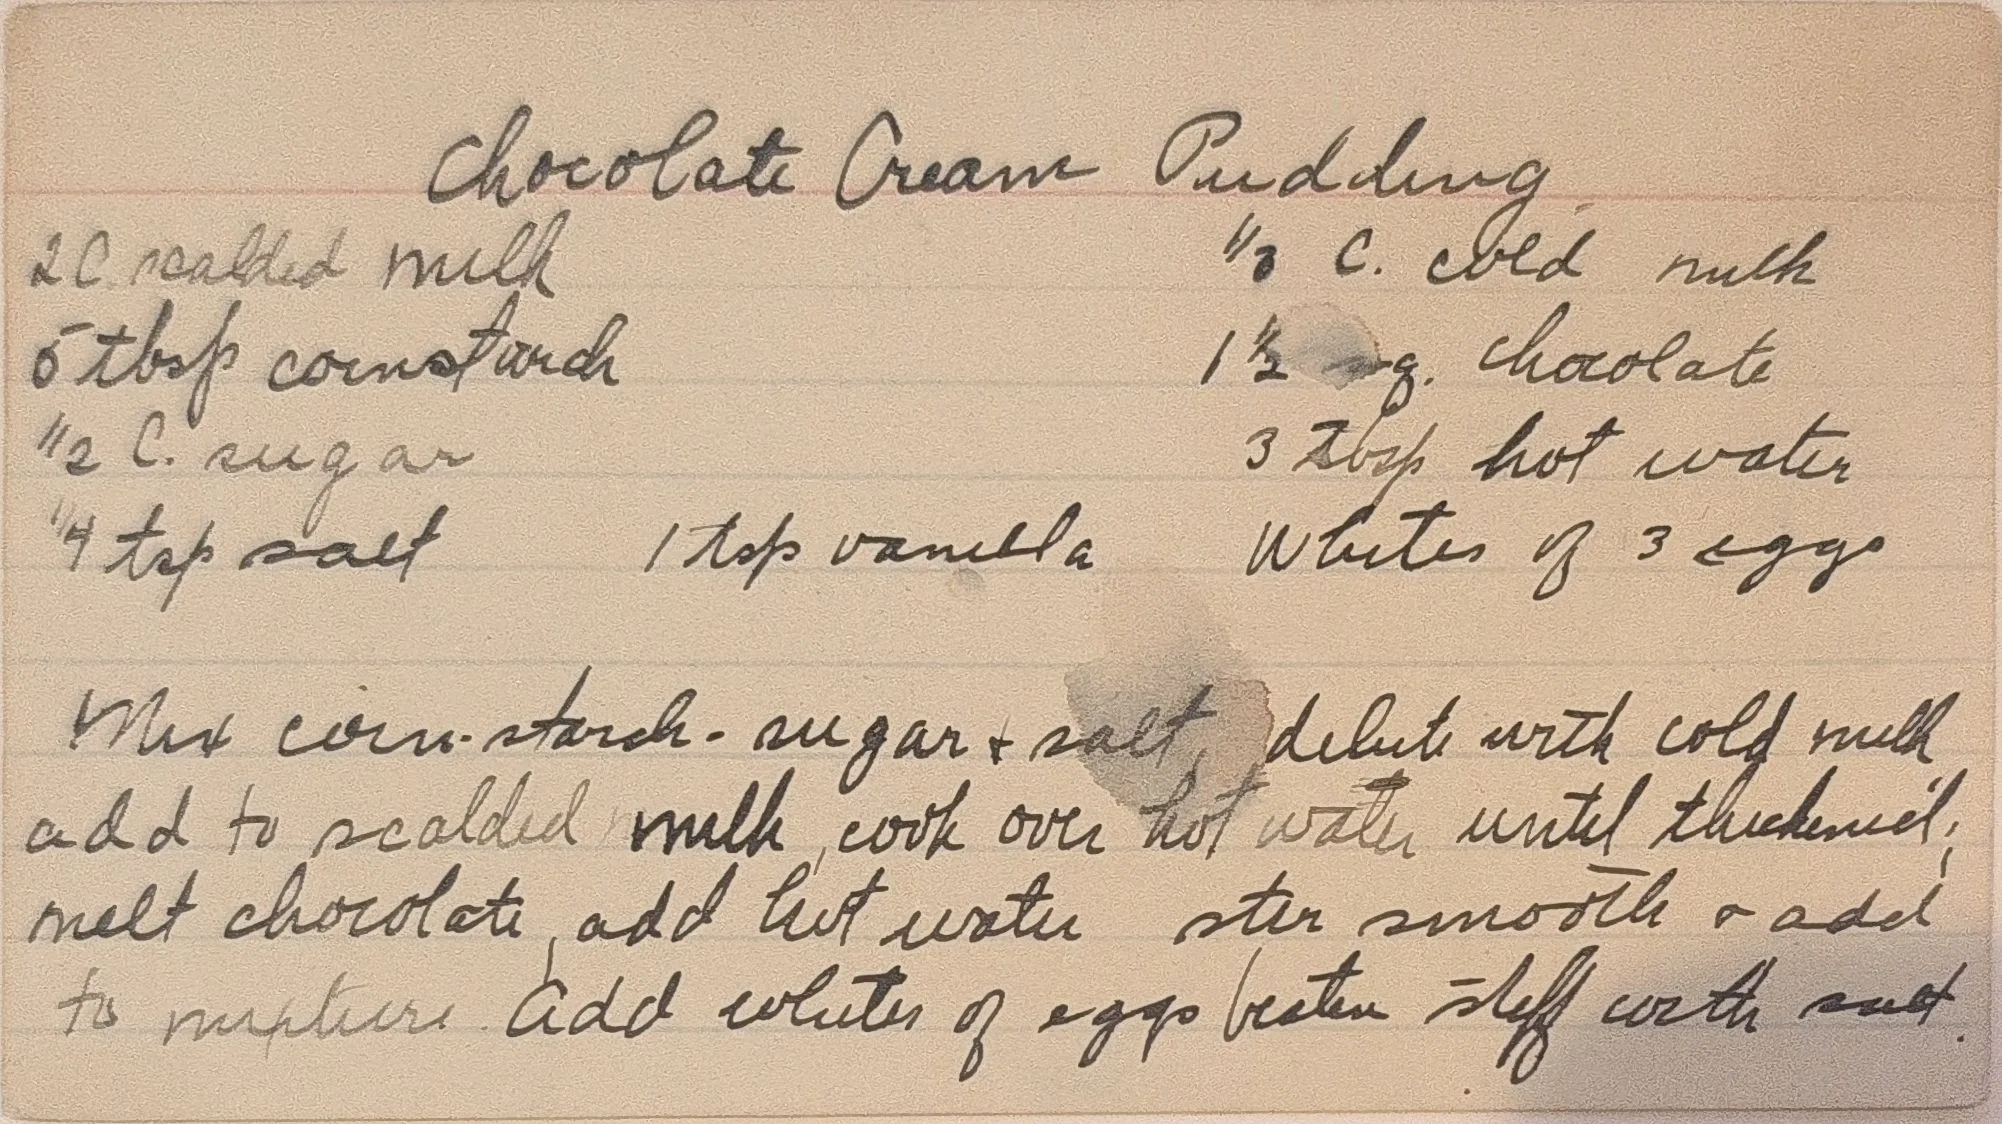 Chocolate Cream Pudding
2 C. scalded milk 1/3 C. cold milk
5 tbsp cornstarch 1 1/2 sq. chocolate
1/2 C. sugar 3 Tbsp hot water
1/4 tsp salt 1 tsp vanilla Whites of 3 eggs
Mix corn-starch - sugar + salt, dilute with cold milk
add to scalded milk, cook over hot water until thickened;
melt chocolate, add hot water stir smooth & add
to mixture. Add whites of eggs beaten stiff with salt.